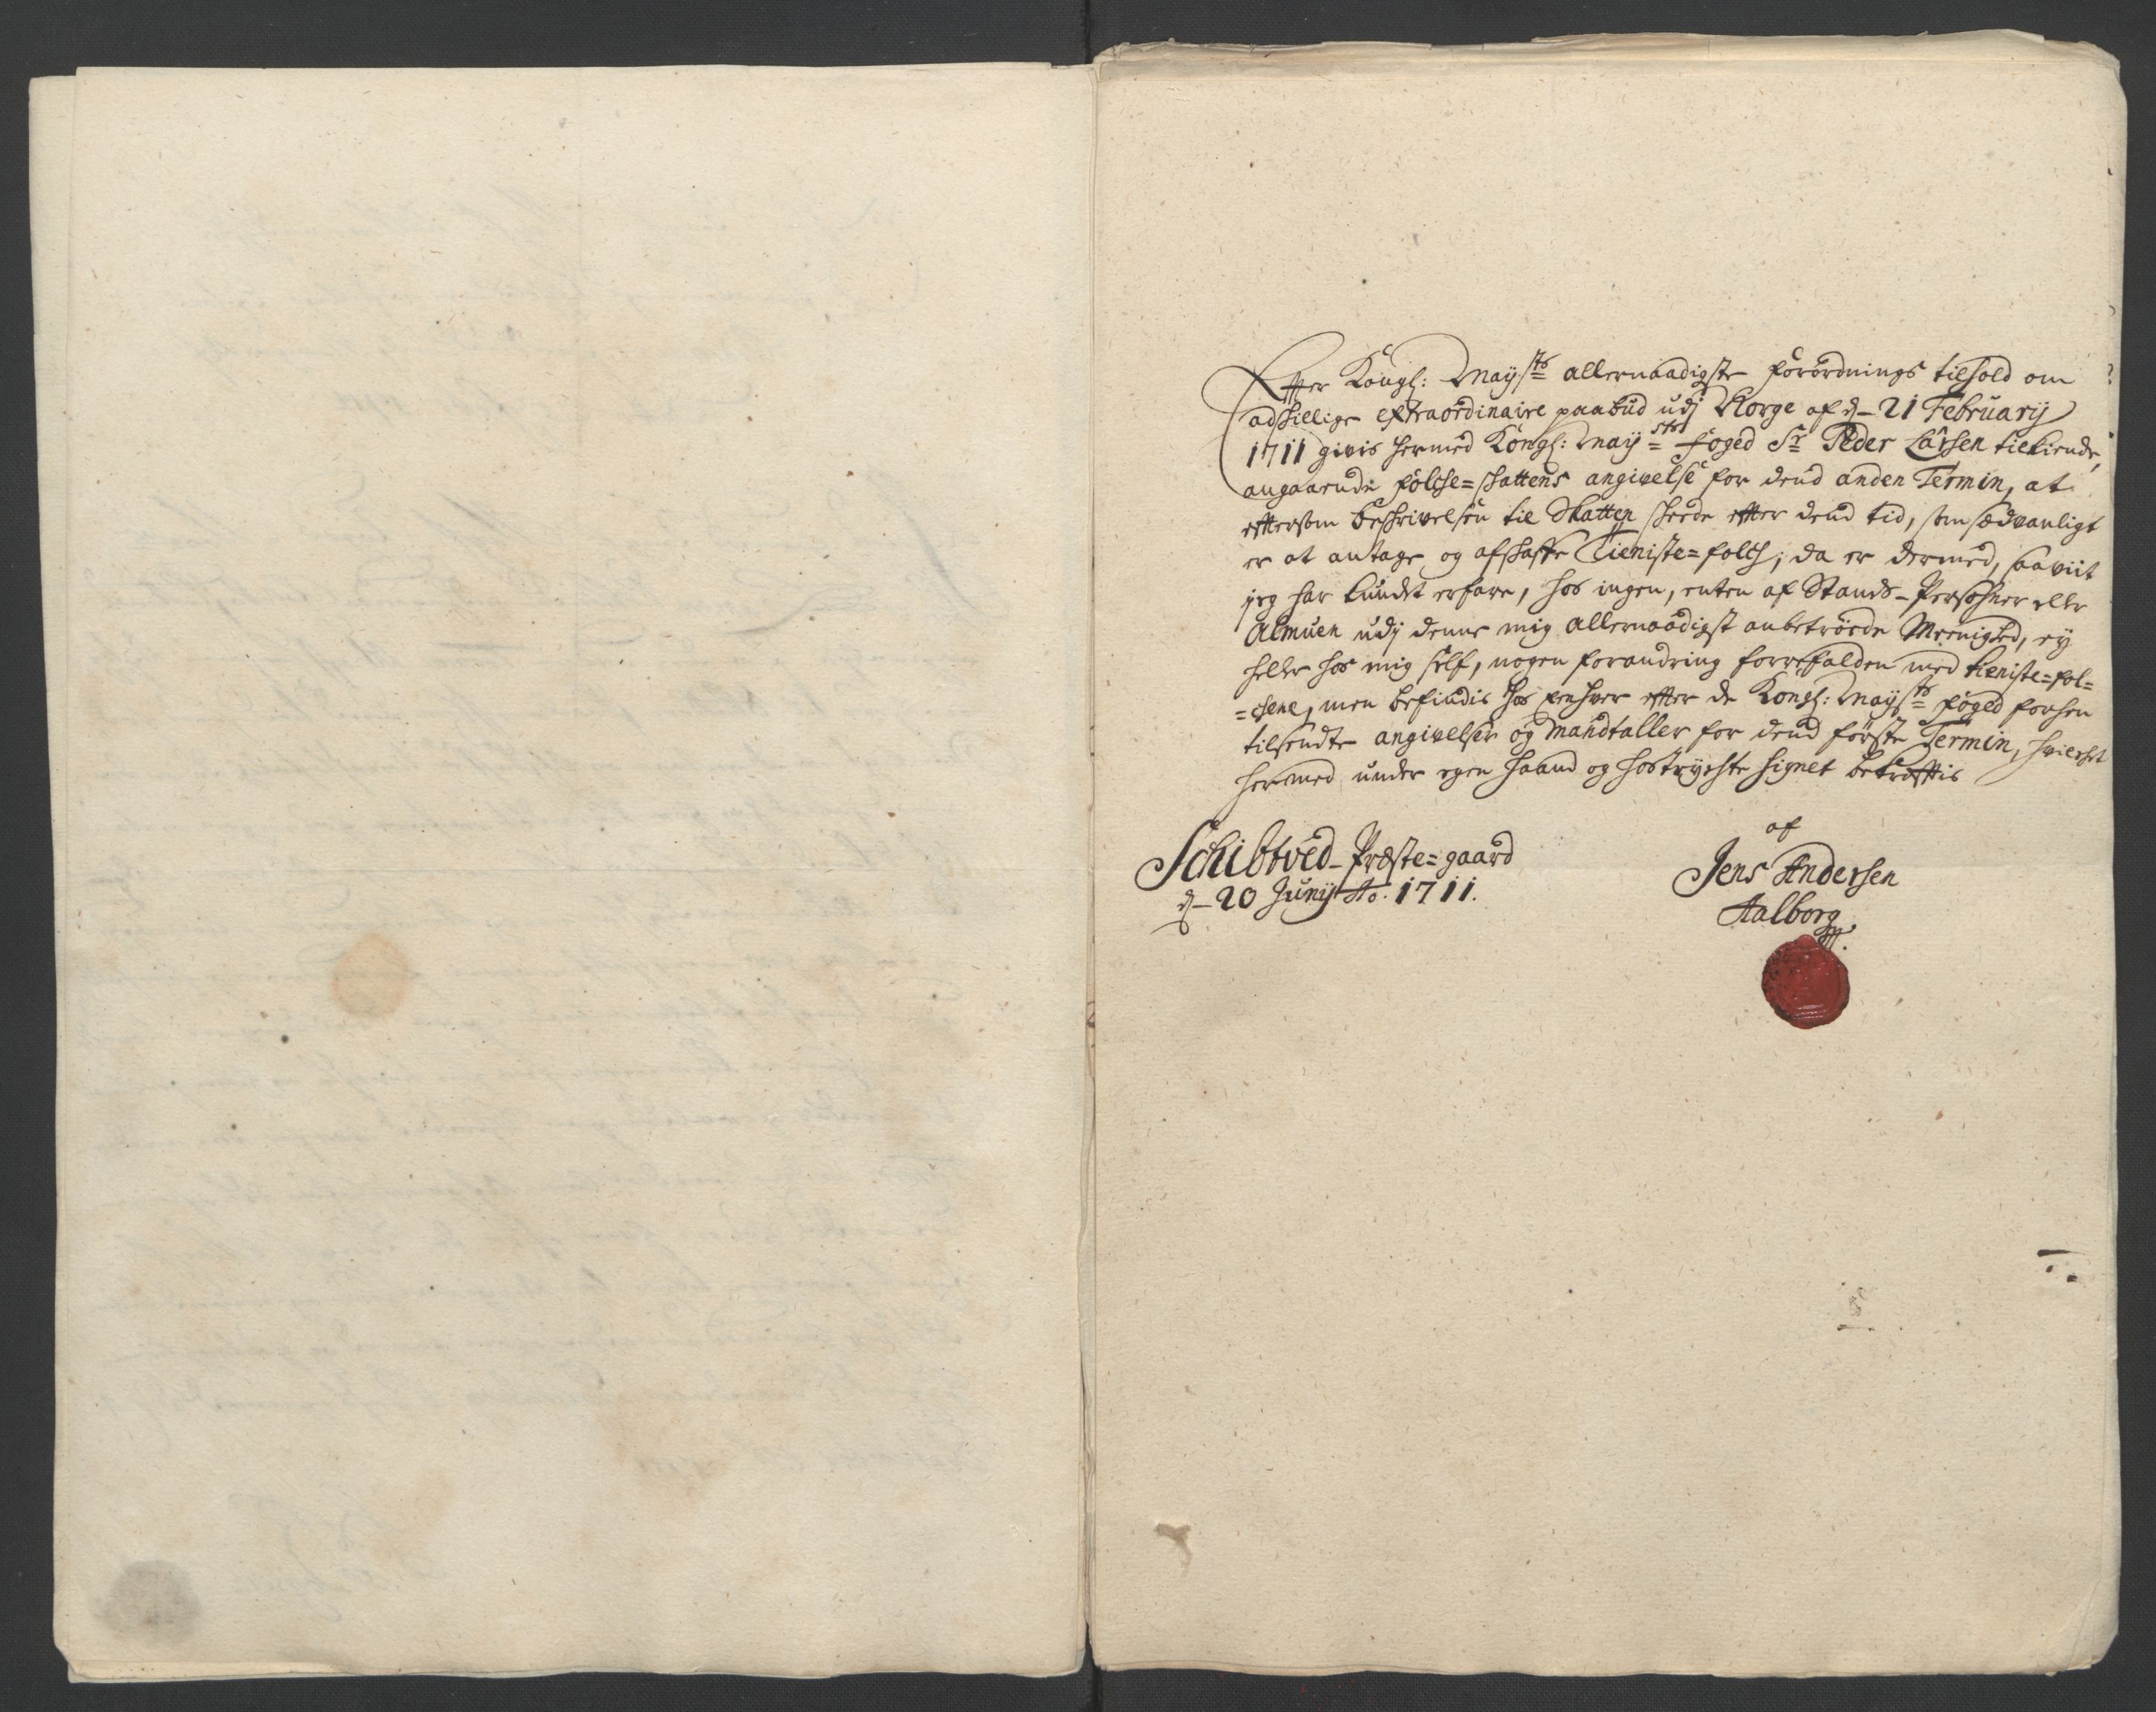 Effter Kongl: Mayˢᵗˢ allernaadigste forordnings tilhold om
adskillige extraordinaire paabud udj Norge af d– 21 February
1711 givis hermed Kongl: Mayˢᵗˢ foged Sr Peder Larsen tilkiende,
angaaende folche=skattens angivelse for dend anden Termin, at
effterson beskrivelsen til Skatten skeede effter dend tid, som sædvanligt
er at antage og afskaffe Tieniste=folch; da er dermed, saaviit
jeg har kundet erfare, hos ingen, enten af Stands-Persohner eller
Almuen udj denne mig allernaadigst anbetroede Meenighed, ey
heller hos mig self, nogen forandring forrefalden med tieniste=fol=
=chene, men befindis hos eenhver effter de Kongl: Mayˢᵗˢ foged forhen
tilsendte angivelser og Mandtaller for dend förste Termin, hvilchet
hermed under egen haand og hostrychte signet bekræfftis
af
Schibtved-Præste=gaard
d– 20 Junij Ao. 1711.
Jens Andersen
Aalborg